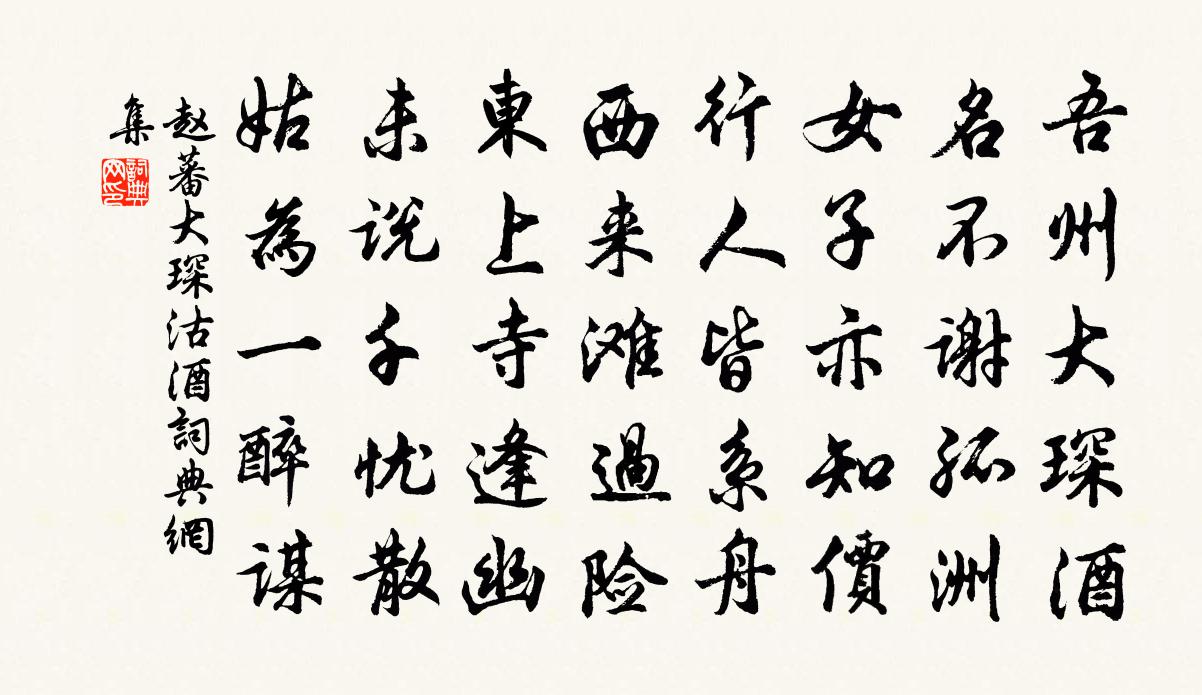 吾州大琛酒
名不謝孤洲
女子亦知價
行人皆系舟
西来滩過险
東上寺逢幽
未说千忧散
姑為一醉谋
赵蕃大琛沽酒詞典網
集
詞典
网印